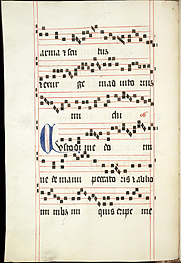 arma et scu tum
et exur ge in ad iuto rium
mi chi
Custodi me do mi
ne de manu peccato ris et ab ho
mi nibus ini quis eripe me